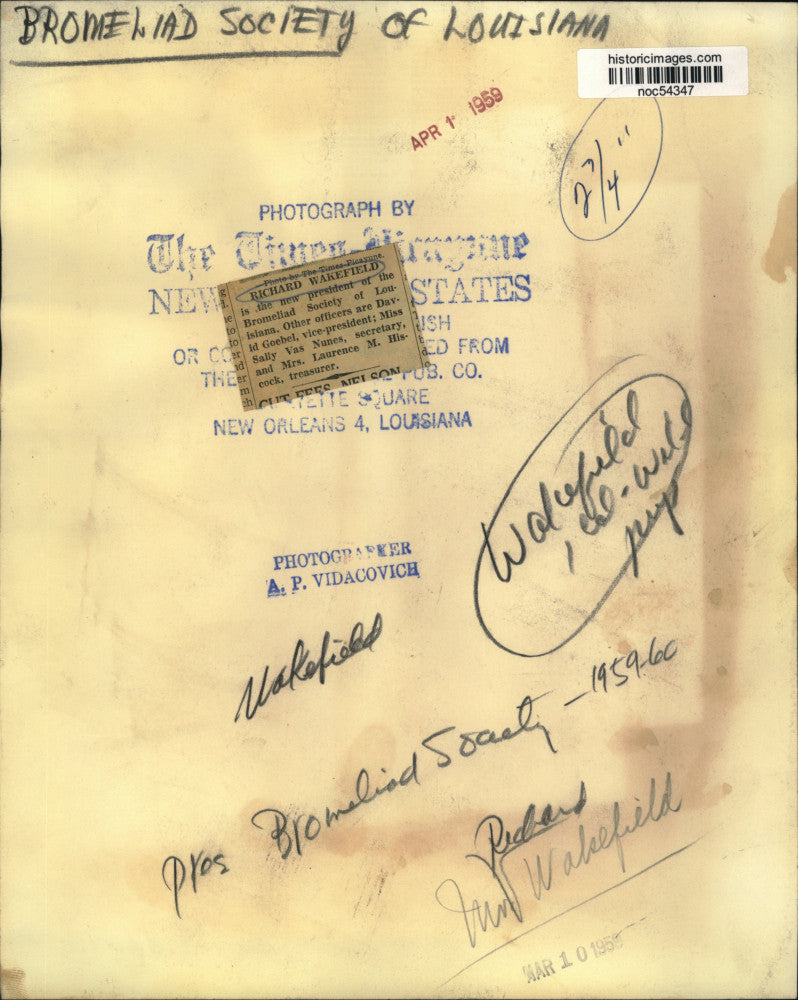 BROMELIAD SOCIETY OF LOUISIANA
historicimages.com
noc54347
APR 1 1959
2 3/4"
PHOTOGRAPH BY
The Times-Picayune
NEW STATES
ISH
OR CO ED FROM
THE PUB. CO.
SQUARE
NEW ORLEANS 4, LOUISIANA
Photo by The Times-Picayune.
RICHARD WAKEFIELD
is the new president of the
Bromeliad Society of Lou-
isiana. Other officers are Dav-
id Goebel, vice-president; Miss
Sally Vas Nunes, secretary,
and Mrs. Laurence M. His-
cock, treasurer.
CUT FEES, NELSON
Wakefield
1 col
PHOTOGRAPHER
A. P. VIDACOVICH
Wakefield
Pres Bromeliad Society - 1959-60
Richard
Wakefield
MAR 10 1959